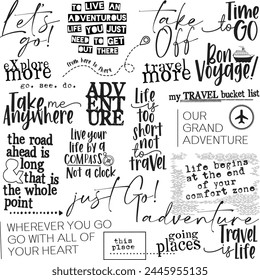 Let's
go!
TO LIVE AN
ADVENTUROUS
LIFE YOU JUST
NEED TO GET
OUT THERE
Take
Off
Time to
GO
explore
more
from here to there
travel
more
Bon
Voyage!
go. see. do.
Take me
Anywhere
ADV
EN
TURE
Life
is
too
short
not
to
travel
my TRAVEL bucket list
OUR
GRAND
ADVENTURE
the road
ahead is
long
that is
the whole
point
Live your
life by a
COMPASS
Not a clock
life begins
at the end
of your
comfort zone
just Go!
adventure
WHEREVER YOU GO
GO WITH ALL OF
YOUR HEART
this
place
going
places
Travel
is Life
shutterstock
IMAGE ID: 2445955135
www.shutterstock.com